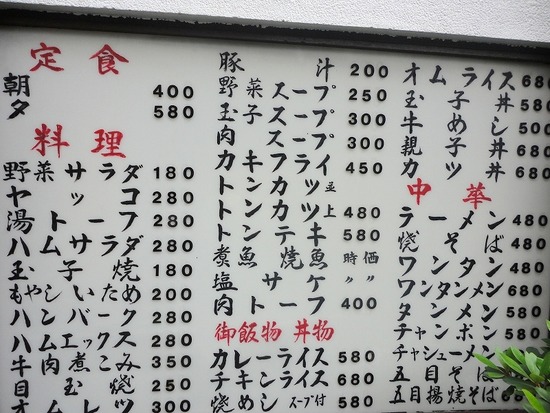 定食
朝 400
夕 580
料理
野菜サラダ 180
ヤッコ 280
湯トーフ 280
ハムサラダ 280
玉子焼 180
もやしいため 200
ハンバーク 280
ハムエックス 300
牛煮こみ 350
目玉焼 250
オムレツ 300
豚汁 200
野菜スープ 250
玉子スープ 300
肉スープ 300
カキフライ 450
トンカツ並
トンカツ上 480
トンテキ 580
煮魚焼魚 時価
塩サケ 〃〃
肉トーフ 400
御飯物 丼物
カレーライス 580
チキンライス 680
焼めし スープ付 580
オムライス 680
玉子丼 580
牛めし 500
親子丼 580
カツ丼 680
中華
ラーメン 480
焼そば 480
ワンタン 480
ワンタンメン 580
タンメン 580
チャンポン 580
チャシューメン
五目そば 680
五目揚焼そば 680